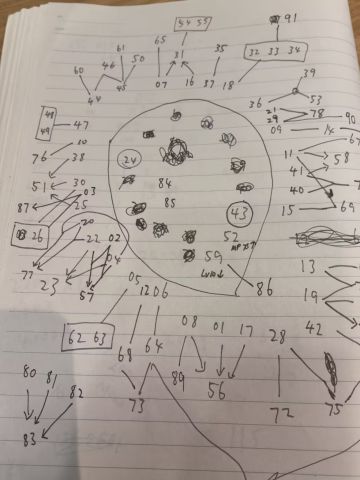 54 55
91
61
65
35
46
50
31
32 33 34
60
39
44
45
07
16
37
18
36
53
48
47
21
78
49
29
90
09
14
10
76
38
11
58
24
41
51
30
03
84
40
87
25
85
43
15
69
26
20
22
02
52
59
77
04
23
57
86
13
05
12
06
19
62 63
08
01
17
28
42
68
64
80
81
89
56
82
73
72
75
83